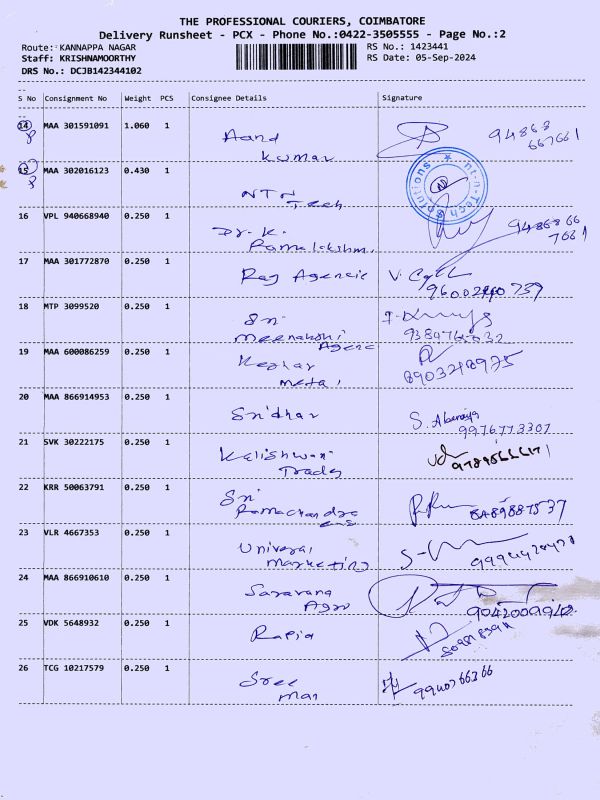 THE PROFESSIONAL COURIERS, COIMBATORE
Delivery Runsheet - PCX - Phone No.:0422-3505555 - Page No.:2
Route: KANNAPPA NAGAR
Staff: KRISHNAMOORTHY
DRS No.: DCJB142344102
RS No.: 1423441
RS Date: 05-Sep-2024
S No Consignment No Weight PCS Consignee Details Signature
14 MAA 301591091 1.060 1 Aand
Kumar
94868
667661
15 MAA 302016123 0.430 1 NTN
Tech
nt-n-Tech Solutions
16 VPL 940668940 0.250 1 Dr. K.
Ramalakshmi
94868 66
7661
17 MAA 301772870 0.250 1 Raj Agencie
18 MTP 3099520 0.250 1 Sri
Meenakshi
Agenc
19 MAA 600086259 0.250 1 Keshar
Metal
8903218975
20 MAA 866914953 0.250 1 Sridhar
9976773307
21 SVK 30222175 0.250 1 Kalishwari
Trades
22 KRR 50063791 0.250 1 Sri
Ramachandra
23 VLR 4667353 0.250 1 Universal
Marketing
24 MAA 866910610 0.250 1 Saravana
Agro
25 VDK 5648932 0.250 1
26 TCG 10217579 0.250 1 Sree
Mar
9940766366